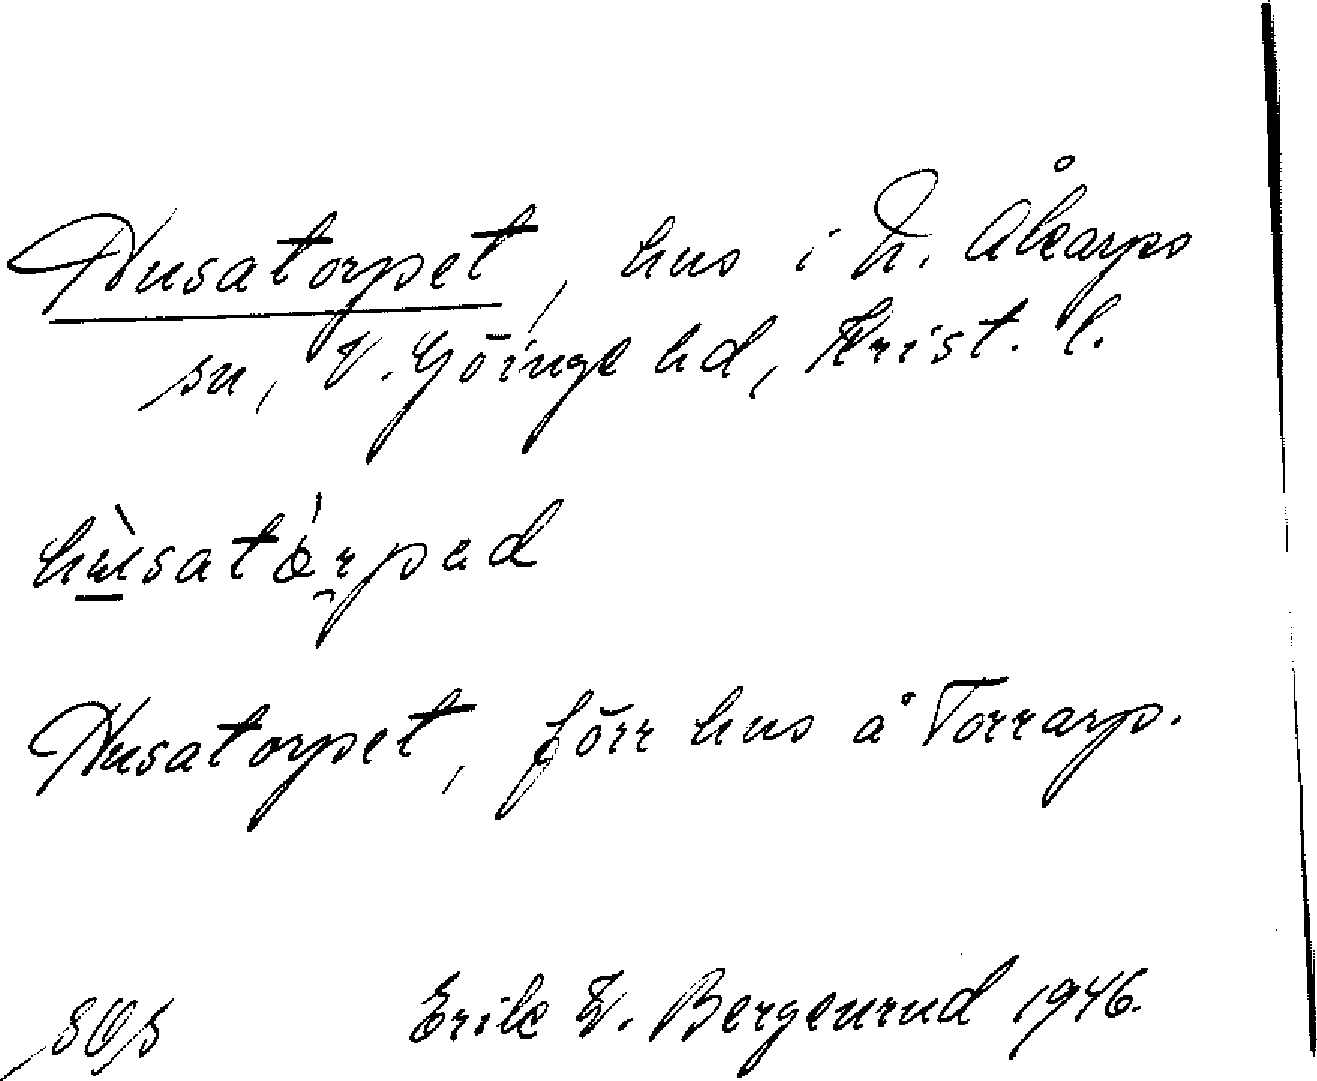 Husatorpet, hus i N. Åkarps
sn, V. Göinge hd, Krist. l.
hùsatórpəd
Husatorpet, förr hus å Torrarp.
Erik V. Bergenrud 1946.